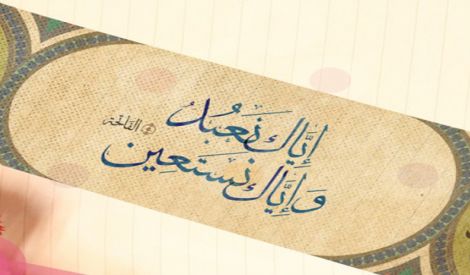 إِيَّاكَ نَعْبُدُ
وَإِيَّاكَ نَسْتَعِين
الفاتحة